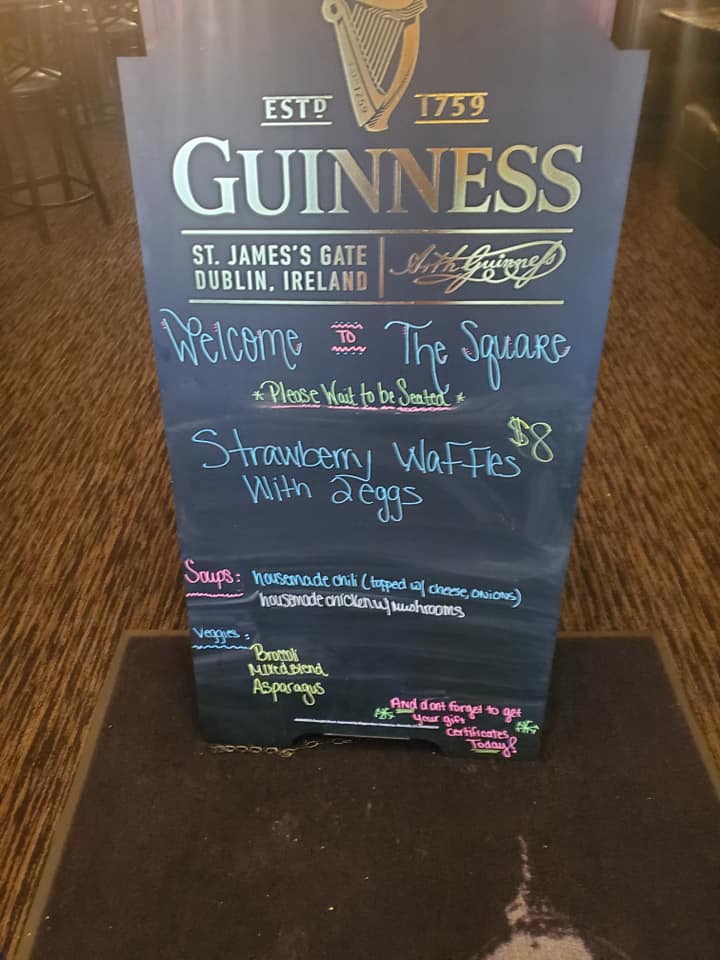 ESTD 1759
GUINNESS
ST. JAMES'S GATE
DUBLIN, IRELAND
Arth Guinness
Welcome TO The Square
*Please Wait to be Seated*
$8
Strawberry Waffles
With 2 eggs
Soups: housemade chili (topped w/ cheese, onions)
housemade chicken w/ mushrooms
Veggies:
Broccoli
Mixed Blend
Asparagus
And dont forget to get
your gift
certificates
Today!